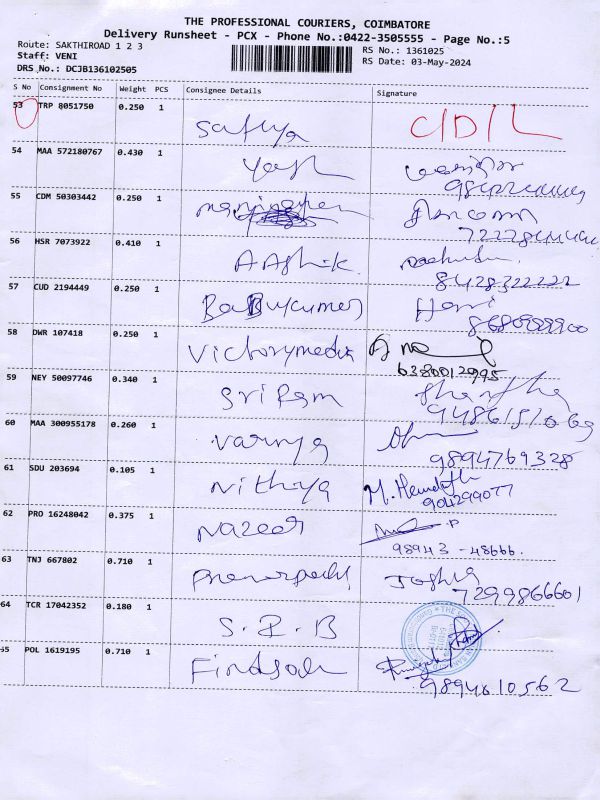 THE PROFESSIONAL COURIERS, COIMBATORE
Delivery Runsheet - PCX - Phone No.:0422-3505555 - Page No.:5
Route: SAKTHIROAD 1 2 3
RS No.: 1361025
Staff: VENI
RS Date: 03-May-2024
DRS No.: DCJB136102505
S No Consignment No Weight PCS Consignee Details Signature
53 TRP 8051750 0.250 1 Safiya
54 MAA 572180767 0.430 1 Yash
55 CDM 50303442 0.250 1
56 HSR 7073922 0.410 1 AAshik
8428322222
57 CUD 2194449 0.250 1 BaBuycumer Hari
58 DWR 107418 0.250 1 Victorymedia
6380012995
59 NEY 50097746 0.340 1 Sri Ram Shantha
9486151069
60 MAA 300955178 0.260 1 Varnya
9894769328
61 SDU 203694 0.105 1 Nithiya
904299077
62 PRO 16248042 0.375 1 Nazeer
98943 - 48666.
63 TNJ 667802 0.710 1 Joshua
7299866601
64 TCR 17042352 0.180 1 S. I. B
55 POL 1619195 0.710 1
9894610562